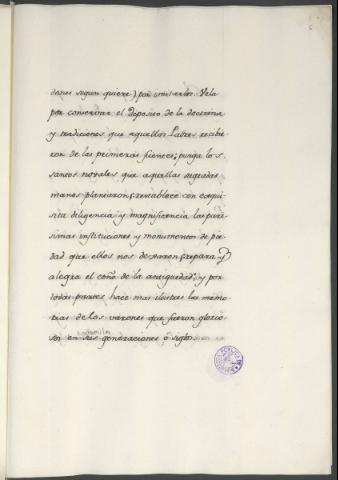 danes segun quiere) por imitarlos. Vela
por conservar el deposito de la doctrina
y tradiciones que aquellos Padres recibie-
ron de las primeras fuentes; purga los
santos novales que aquellas sagradas
manos plantaron; restablece con exqui-
sita diligencia y magnificencia las puri-
simas instituciones y monumentos de pie-
dad que ellos nos dexaron; repara y
alegra el ceño de la antiguedad; y por
todas partes hace mas ilustres las memo-
rias de los varones que fueron glorio-
sos en sus generaciones ó siglos